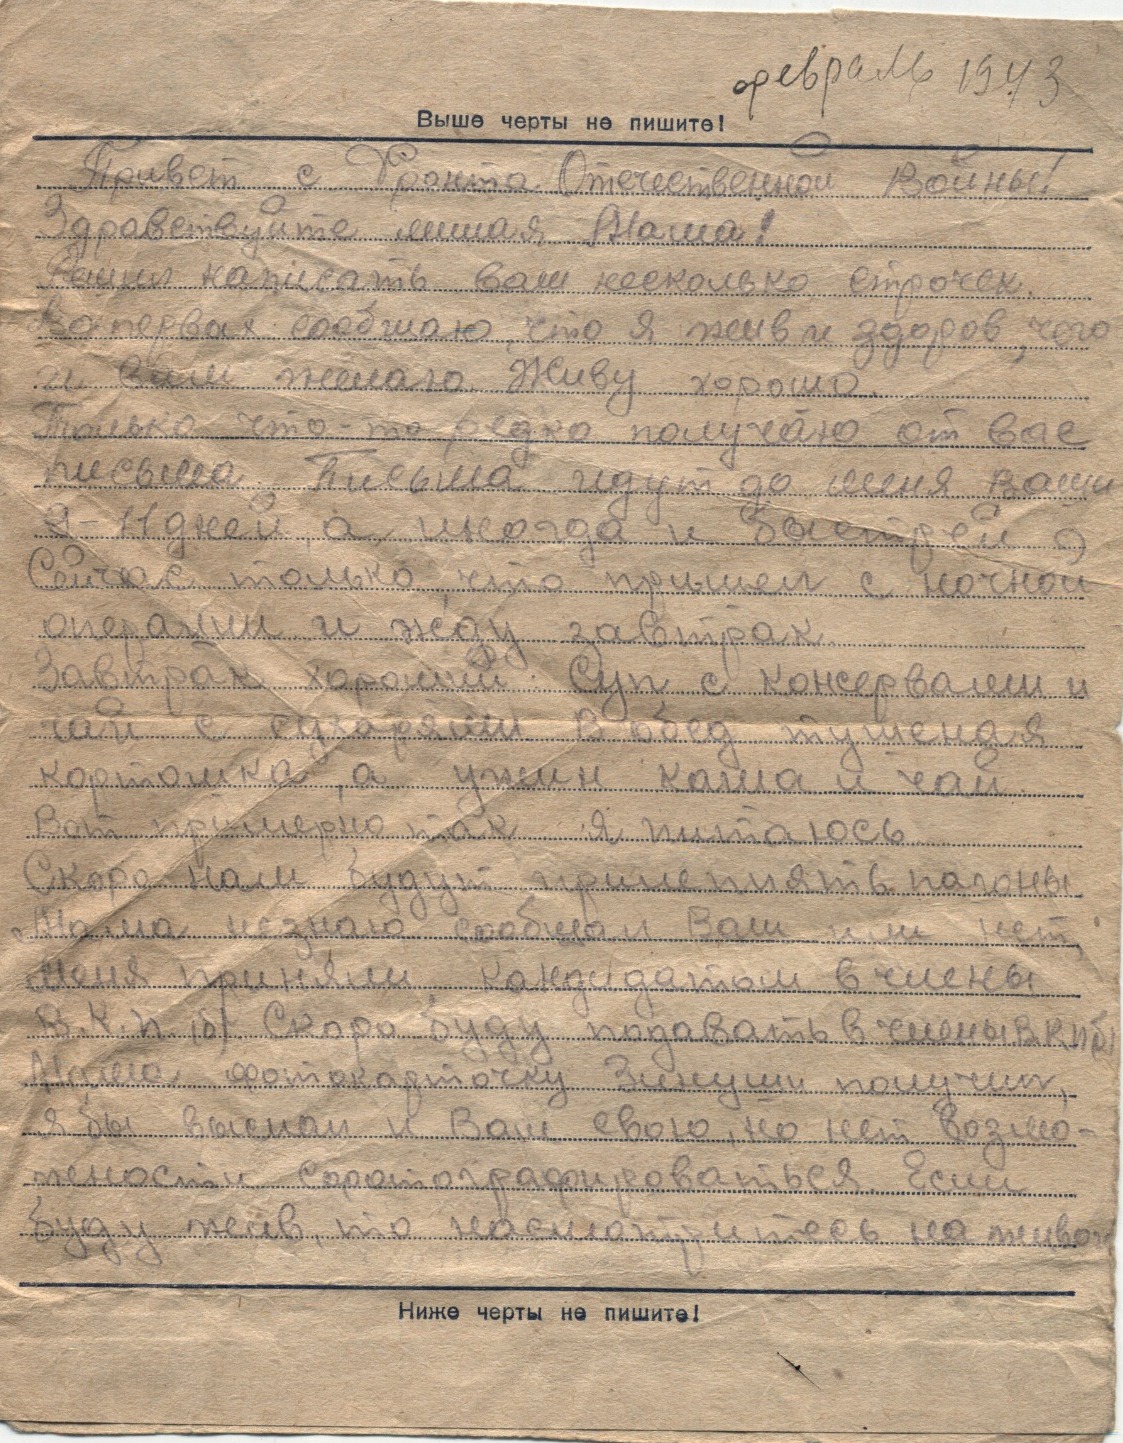 февраль 1943
Выше черты не пишите!
Привет с Фронта Отечественной Войны!
Здравствуйте милая Мама!
Решил написать вам несколько строчек.
Вопервых сообщаю, что я жив и здоров, чего
и Вам желаю. Живу хорошо.
Только что-то редко получаю от вас
письма. Письма идут до меня Ваши
9-11 дней, а иногда и быстрей
Сейчас только, что пришел с ночной
операции и жду завтрак.
Завтрак хороший. Суп с консервами и
чай с сухарями В обед тушеная
картошка, а ужин каша и чай.
Вот примерно так я питаюсь
Скоро нам будут прицеплять погоны
Мама незнаю сообщал Вам или нет,
меня приняли кандидатом в члены
В.К.П.(б). Скоро буду подавать в члены ВКП(б)
Мама фотокарточку Зинуши получил,
я бы выслал и Вам свою, но нет возмо-
жности сфотографироваться. Если
буду жив, то насмотритесь на живого
Ниже черты не пишите!